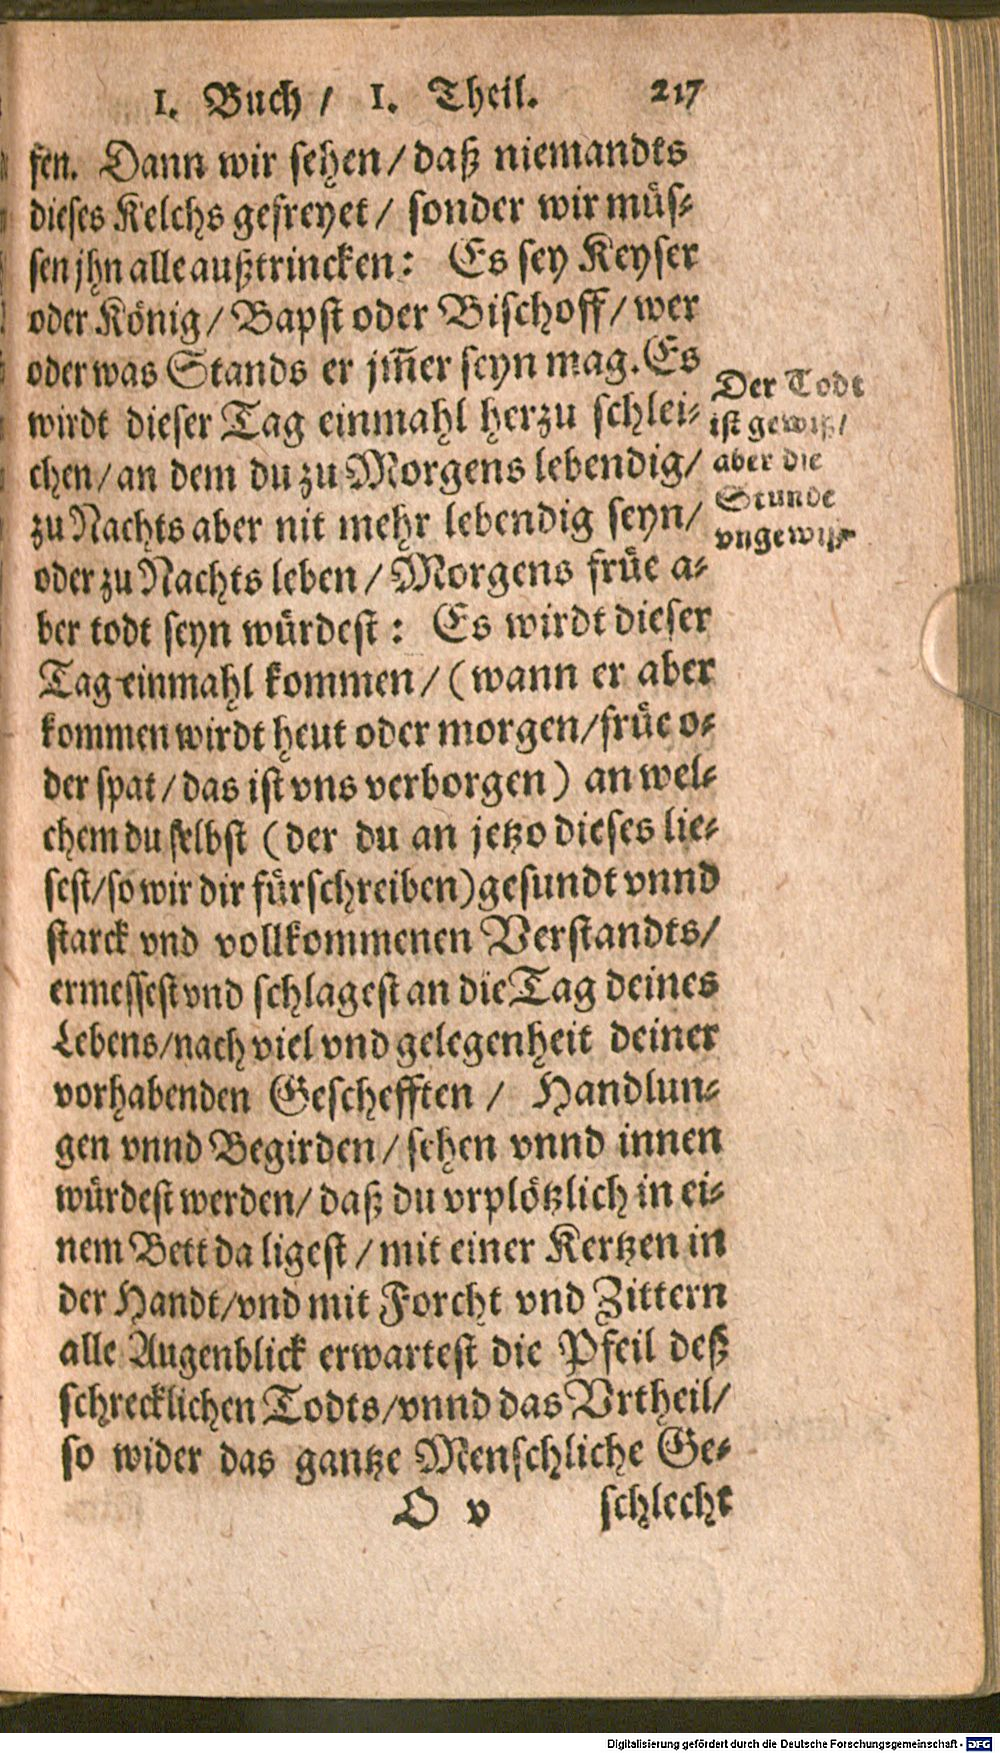 1. Buch / 1. Theil. 217
fen. Dann wir sehen / daß niemandts
dieses Kelchs gefreyet / sonder wir müs-
sen jhn alle außtrincken: Es sey Keyser
oder König / Bapst oder Bischoff / wer
oder was Stands er jm̃er seyn mag. Es
wirdt dieser Tag einmahl herzu schlei-
chen / an dem du zu Morgens lebendig /
zu Nachts aber nit mehr lebendig seyn /
oder zu Nachts leben / Morgens früe a-
ber todt seyn würdest: Es wirdt dieser
Tag einmahl kommen / (wann er aber
kommen wirdt heut oder morgen / früe o-
der spat / das ist vns verborgen) an wel-
chem du selbst (der du an jetzo dieses lie-
sest / so wir dir fürschreiben) gesundt vnnd
starck vnd vollkommenen Verstandts /
ermessest vnd schlagest an die Tag deines
Lebens / nach viel vnd gelegenheit deiner
vorhabenden Geschefften / Handlun-
gen vnnd Begirden / sehen vnnd innen
würdest werden / daß du vrplötzlich in ei-
nem Bett da ligest / mit einer Kertzen in
der Handt / vnd mit Forcht vnd Zittern
alle Augenblick erwartest die Pfeil deß
schrecklichen Todts / vnnd das Vrtheil /
so wider das gantze Menschliche Ge-
O v schlecht
Der Todt
ist gewiß /
aber die
Stunde
vngewiß.
Digitalisierung gefördert durch die Deutsche Forschungsgemeinschaft - DFG